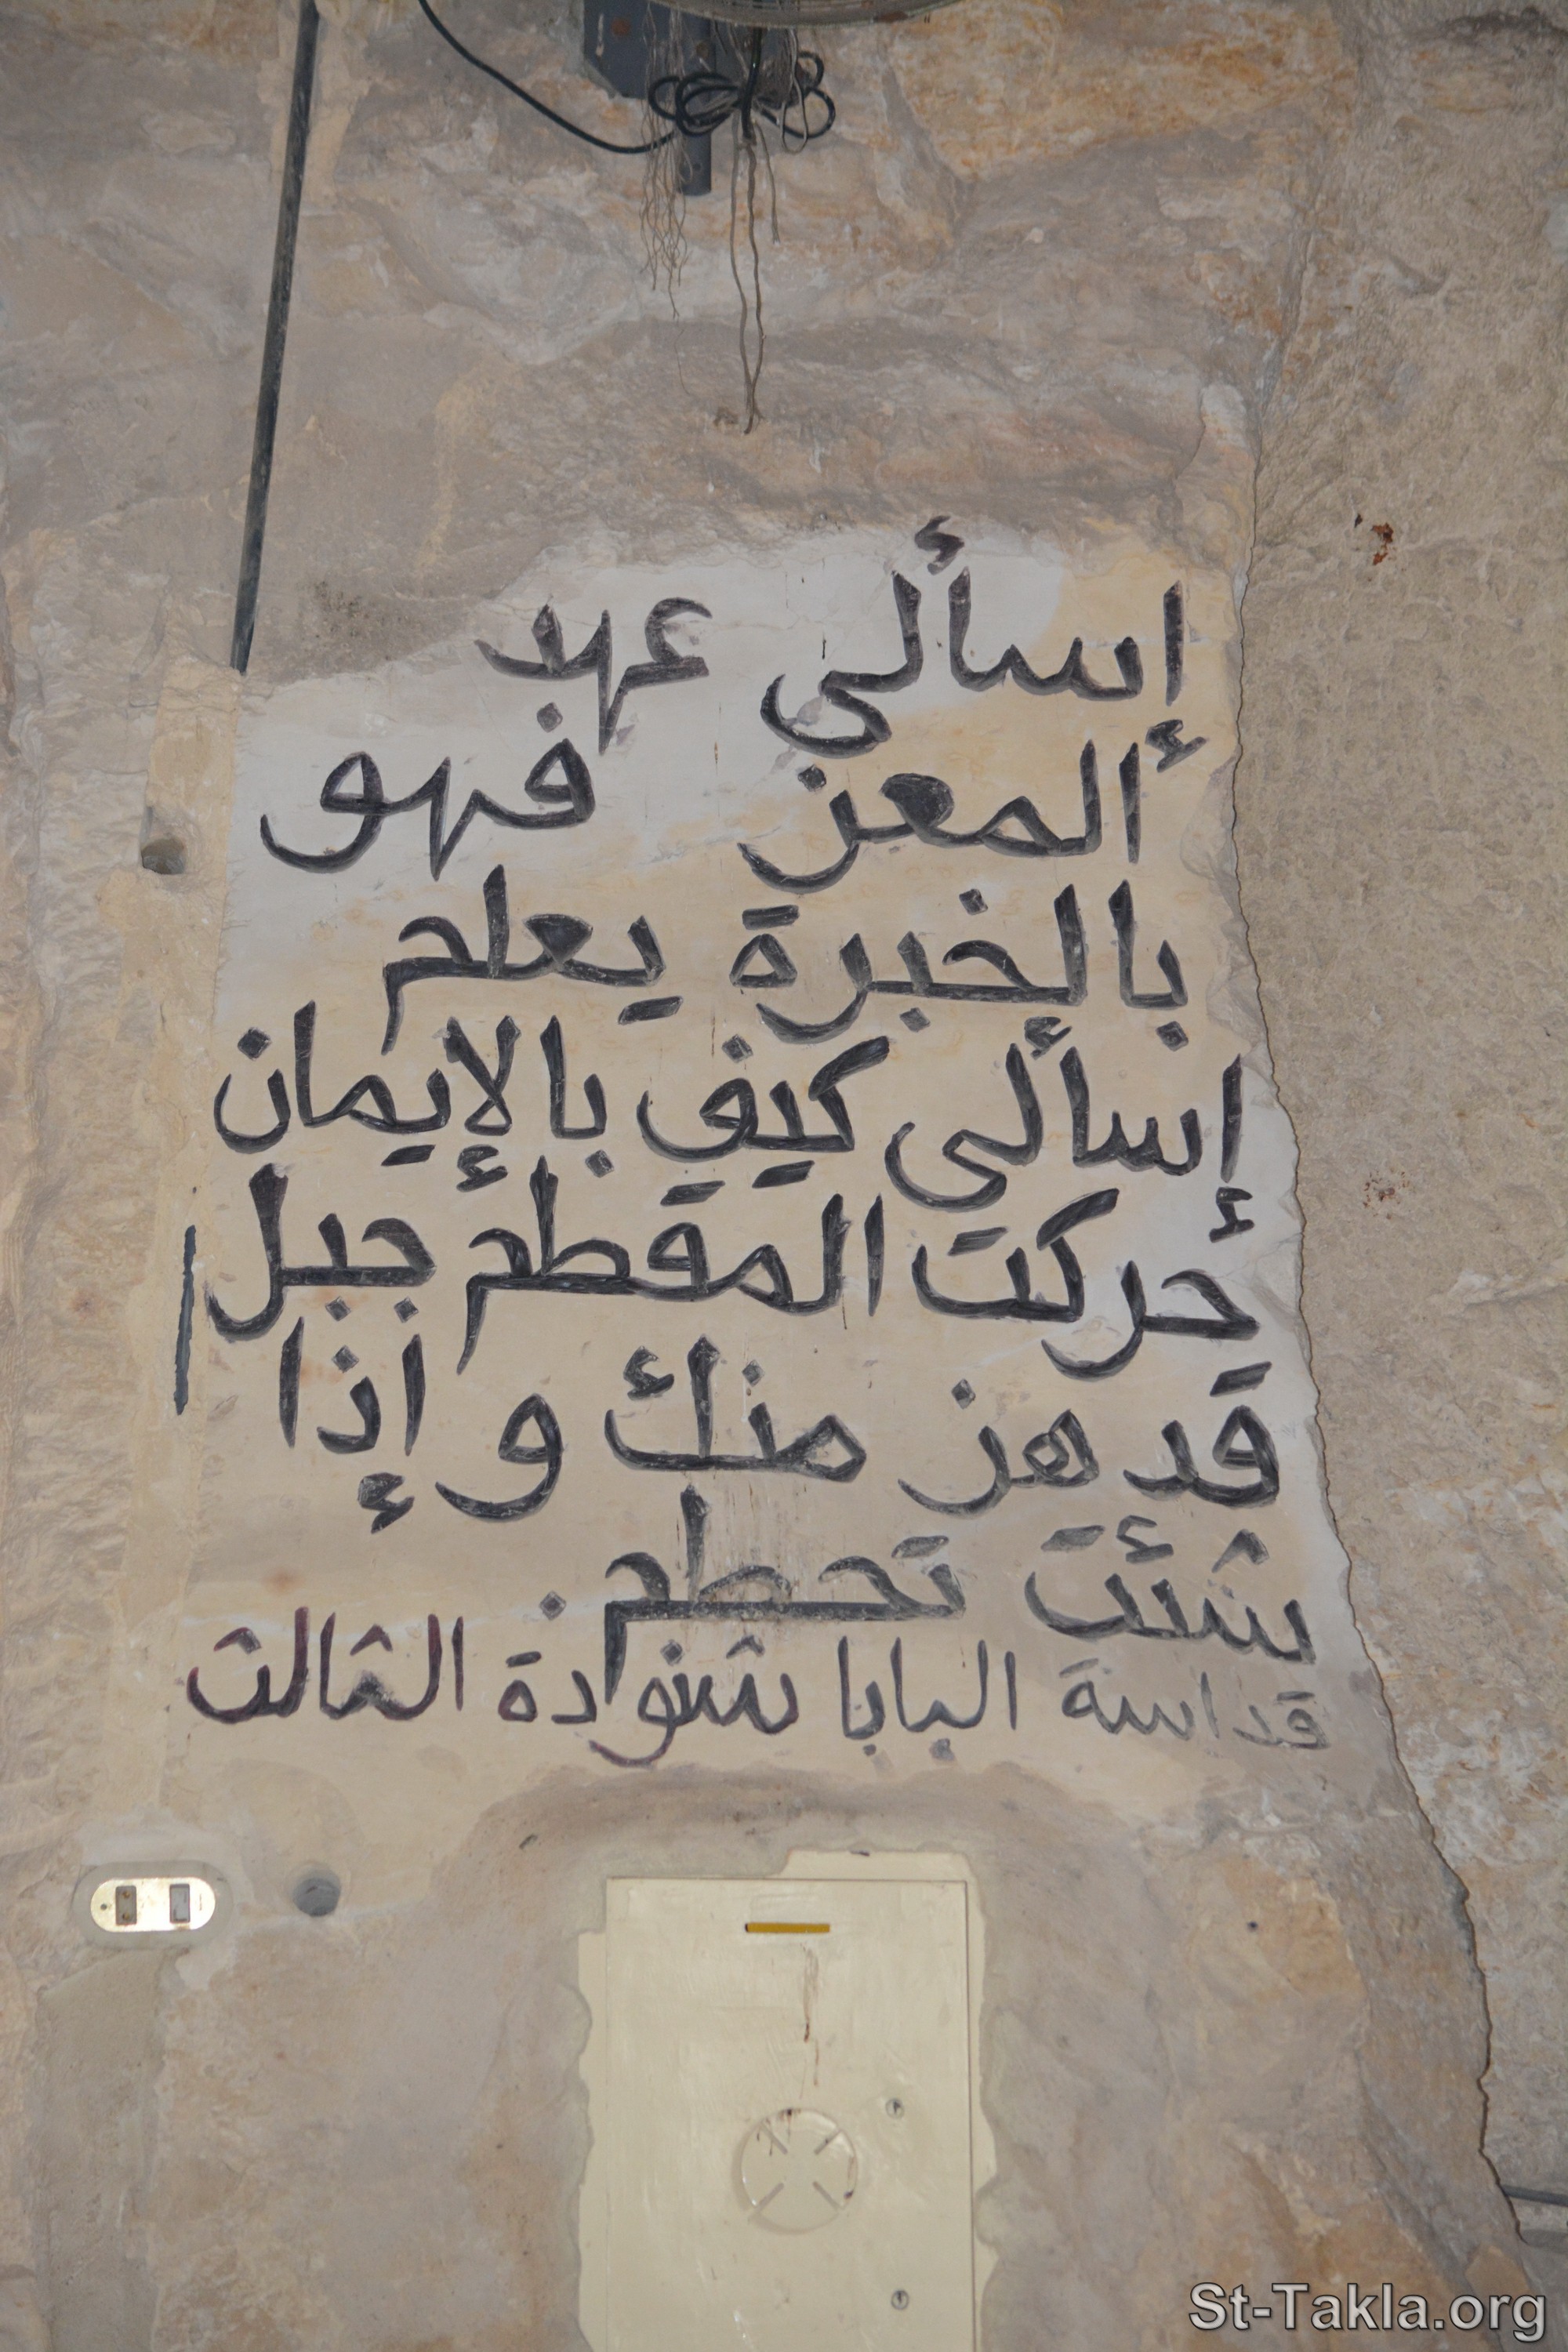 إسألى عهد
المعز فهو
بالخبرة يعلم
إسألى كيف بالإيمان
حركت المقطم جبل
قد هز منك و إذا
شئت تحطم .
قداسة البابا شنوادة الثالث
St-Takla.org